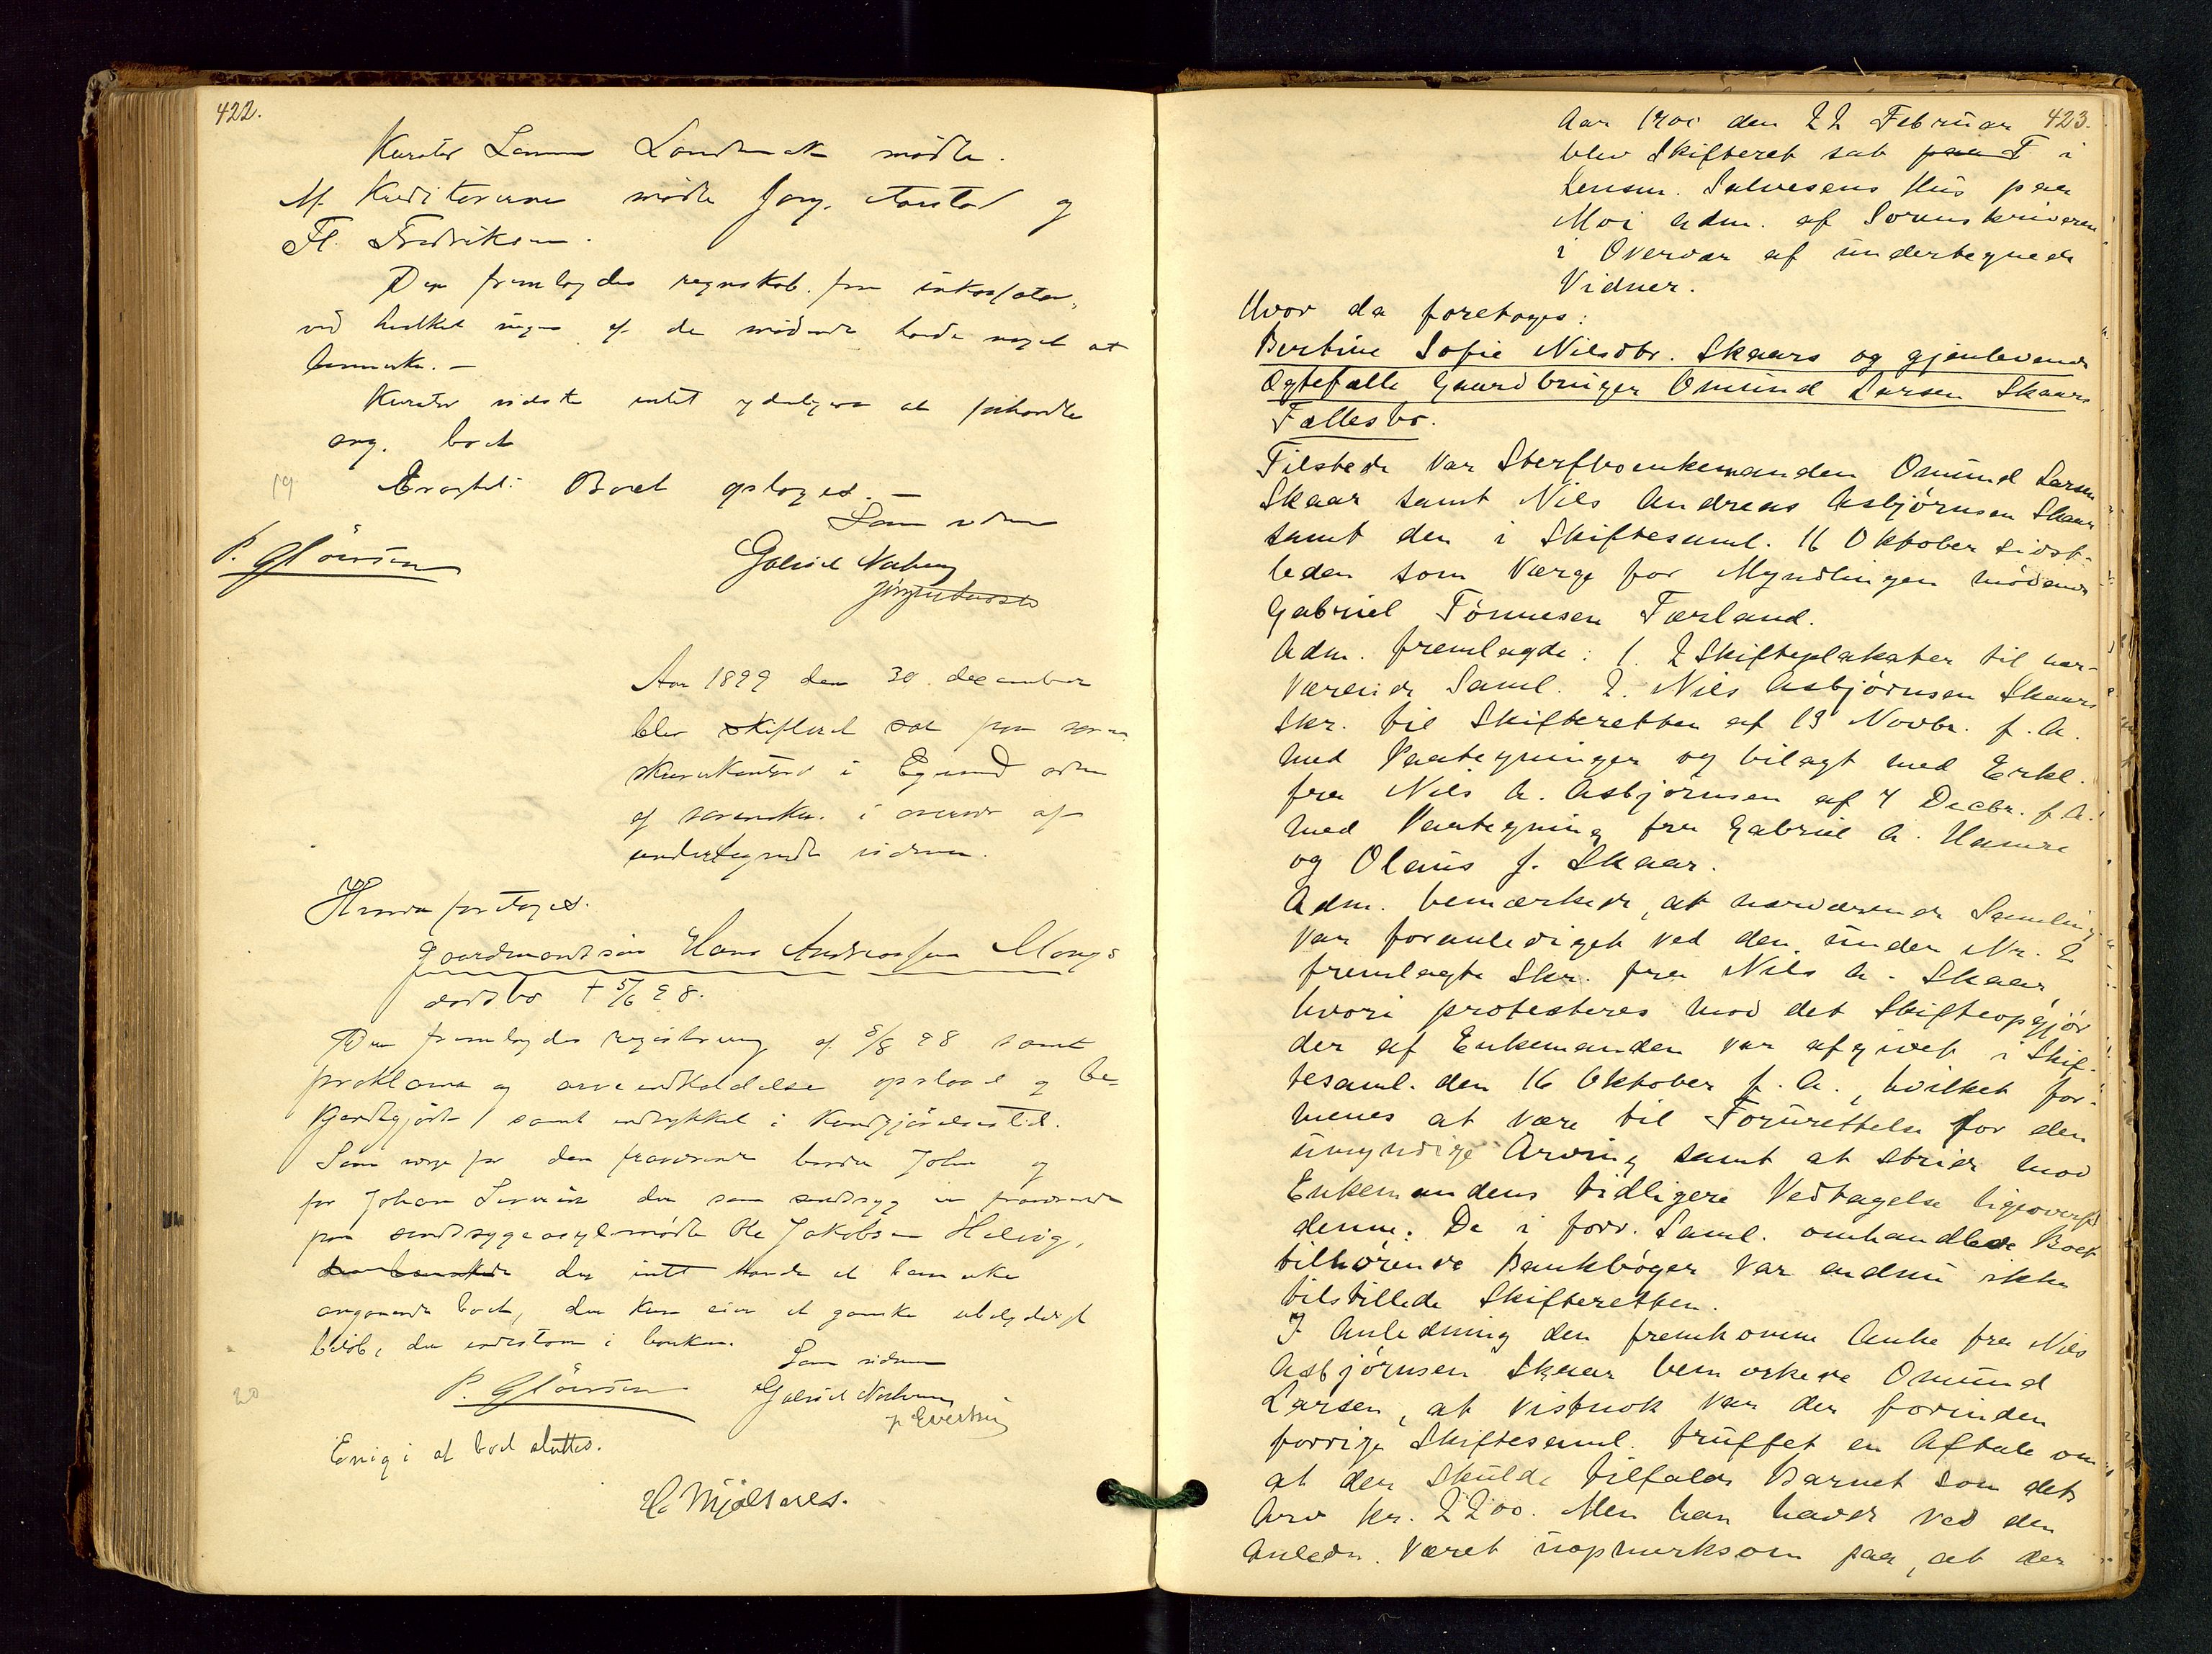 422.
Kurator Landmark mødte.
Af Kreditorerne mødte Jørg. Aarstad og
Fl. Fredriksen.
Der fremlagdes regnskab fra inkassator,
ved hvilket ingen af de mødende havde noget at
bemærke. –
Kurator vidste intet yderligere at forhandle
ang. boet
19
Eragtet: Boet opløses. –
Som vidner
P. Gløersen
Gabriel
Aar 1899 den 30. december
blev skifteret sat paa soren-
skriverkontoret i Egersund adm
af sorenskr. i overvær af
undertegnede vidner.
Hvorda foretoges.
gaardmandssøn Hans Andreassen Mong's
dødsbo † 5/6 98.
Der fremlagdes registrering af 5/8 98 samt
proklama og arveindkaldelse opslaaet og be-
kjendtgjort samt indrykket i Kundgjørelsestid.
Som verge for den fraværende broder John og
for Johan Severin der som sindssyg er fraværende
paa sindssygeasyl mødte Ole Jakobsen Helvig,
der intet havde at bemærke
angaaende boet, der kun eier et ganske ubetydeligt
beløb, der indestaar i banken.
20
Som vidner
P. Gløersen
Gabriel
P Evertsen
Enig i at boet sluttes.
H. Mjølsnes.
423.
Aar 1900 den 22 Februar
blev Skifteret sat paa F i
Lensm. Salvesens Hus paa
Moi adm. af Sorenskriveren
i Overvær af undertegnede
Vidner.
Hvor da foretoges:
Bertine Sofie Nilsdtr. Skaars og gjenlevende
Ægtefælle Gaardbruger Omund Larsen Skaars
Fællesbo.
Tilstede var Sterfboenkemanden Omund Larsen
Skaar samt Nils Andreas Asbjørnsen Skaar
samt den i Skiftesaml. 16 Oktober sidst-
leden som Værge for Myndlingen mødende
Gabriel Tønnesen Tærland.
Adm. fremlagde: 1. 2 Skifteplakater til nær-
værende Saml. 2. Nils Asbjørnsen Skaars
Skr. til Skifteretten af 13 Novbr. f. A.
med Paategninger og bilagt med Erkl.
fra Nils A. Asbjørnsen af 4 Decbr. f. A.
med Paategning fra Gabriel A. Hamre
og Olaus J. Skaar.
Adm. bemærkede, at nærværende Samling
var foranlediget ved den under Nr. 2
fremlagte Skr. fra Nils A. Skaar,
hvori protesteres mod det Skifteopgjør
der af Enkemanden var afgivet i Skif-
tesaml. den 16 Oktober f. A., hvilket for-
menes at være til Forurettelse for den
umyndige Arving samt at stride mod
Enkemandens tidligere Vedtagelse ligeoverfor
denne. De i forr. Saml. omhandlede Boet
tilhørende Bankbøger var endnu ikke
tilstillede Skifteretten.
I Anledning den fremkomne Anke fra Nils
Asbjørnsen Skaar bemærkede Omund
Larsen, at vistnok var der forinden
forrige Skiftesaml. truffet en Aftale om
at der skulde tilfalde Barnet som dets
Arv Kr. 2200. Men han havde ved den
Anledn. været uopmerksom paa, at der